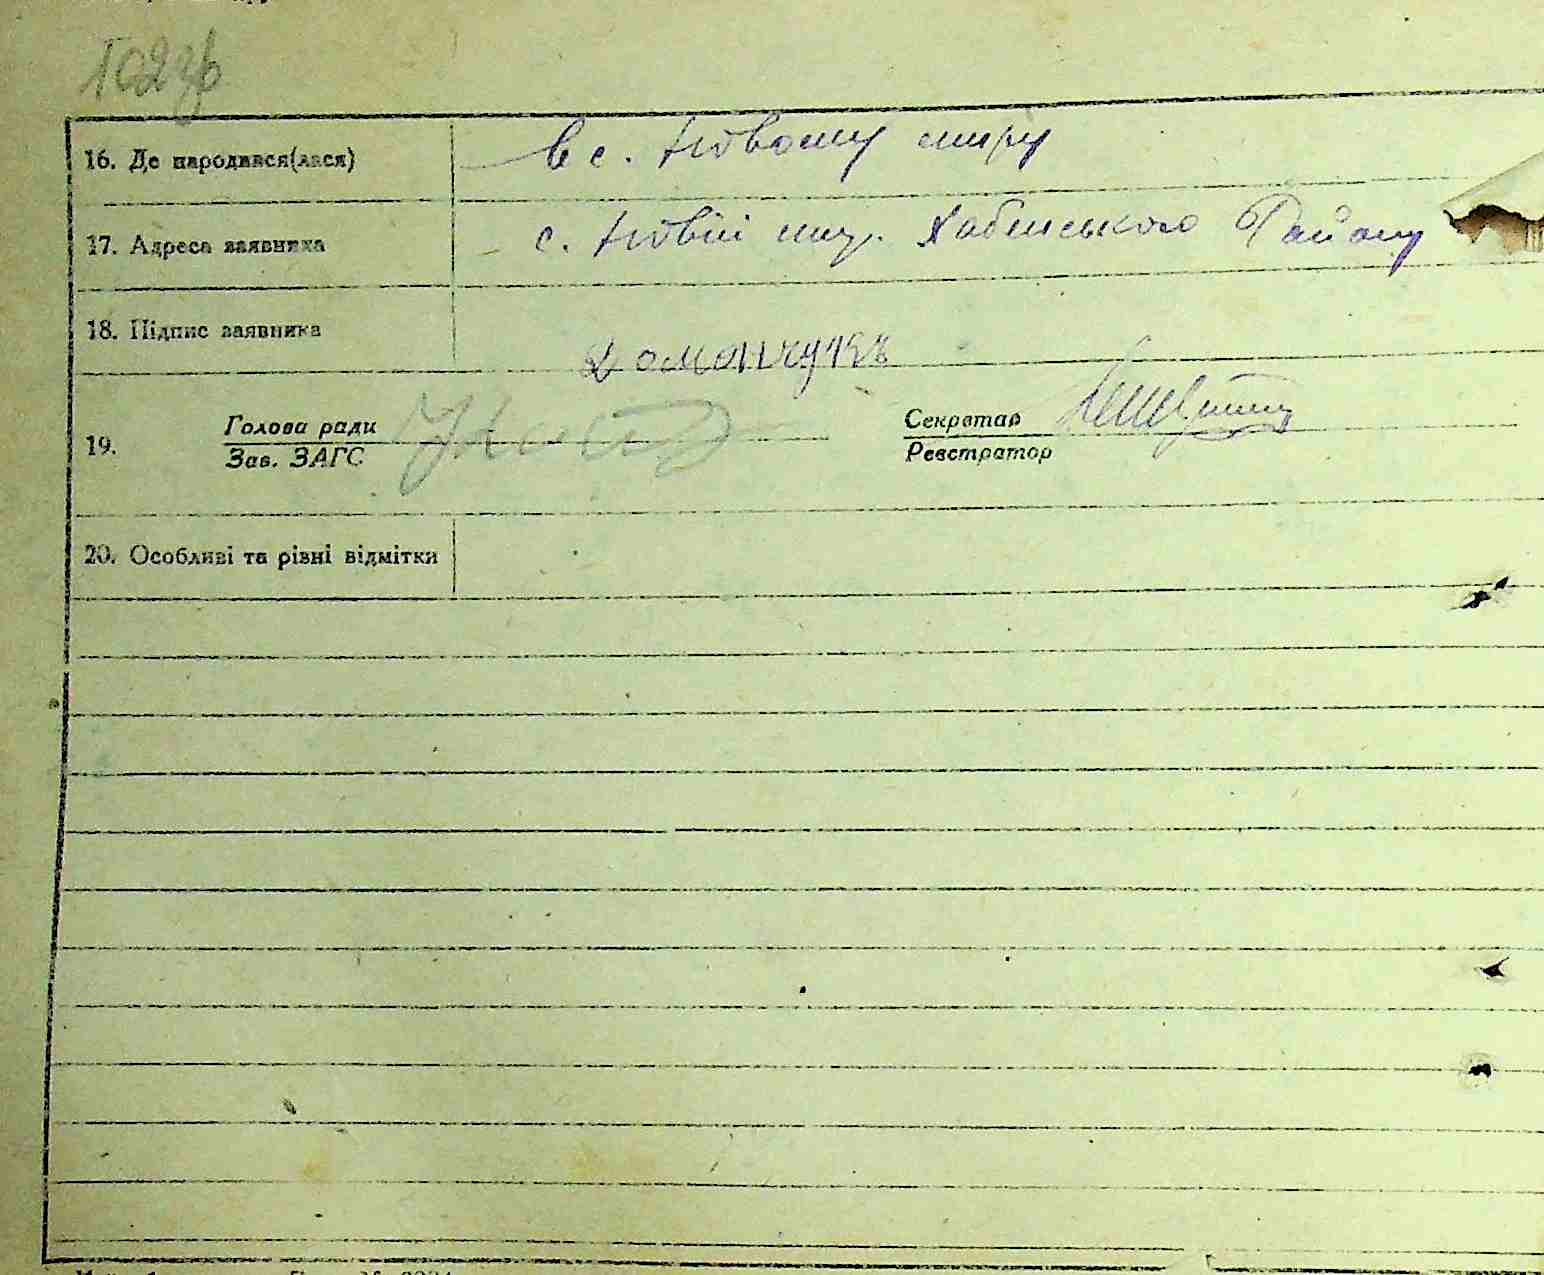 102 зв
16. Де народився(лася) в с. Новому миру
17. Адреса заявника с. Новий мир. Хабенського Району
18. Підпис заявника
19. Голова ради
Зав. ЗАГС
Секретар
Реєстратор
20. Особливі та різні відмітки